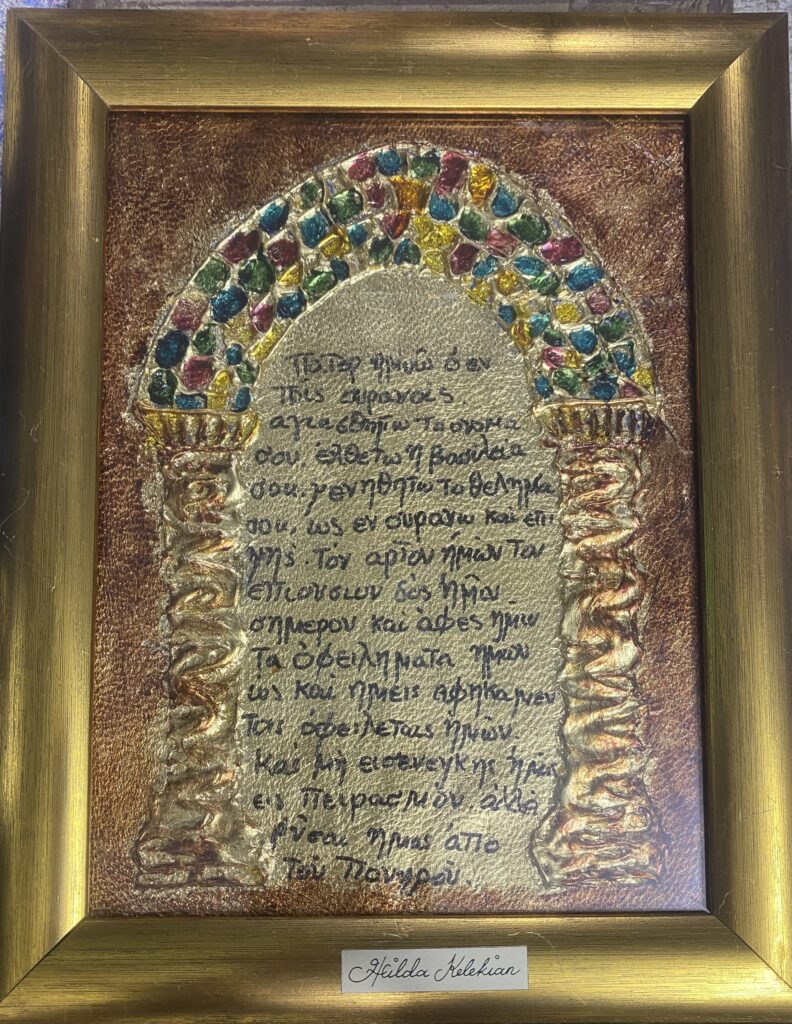 Πατερ ημων ό εν
τοις ουρανοις.
αγιασθητω το ονομα
σου, έλθετω ή βασιλεια
σου, γενηθητω το θελημα
σου, ώς εν ουρανω και επι
γης. Τον αρτον ήμών τον
επιουσιων δός ήμῖν
σημερον και άφες ημιν
τα όφειληματα ημων
ώς και ήμεις αφηκαμεν
τοις όφειλεταις ήμῶν.
Και μή εισενεγκης ήμας
εις Πειρασμόν, άλλά
ρῦσαι ημας άπο
του Πονηροῦ.
Heilda Kelekian